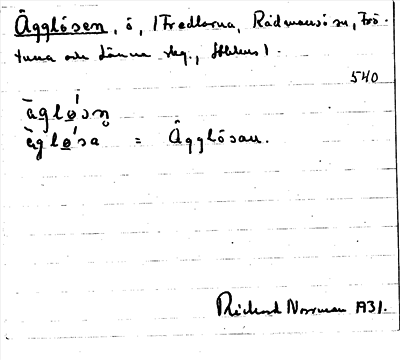 Ägglösen, ö, (Fredlarna, Rådmansö sn, Frö-
tuna och Länna skg., Sthlms l.
540
äglǿsn̥
äglǿsa = Ägglösan.
Richard Norrman 1931.